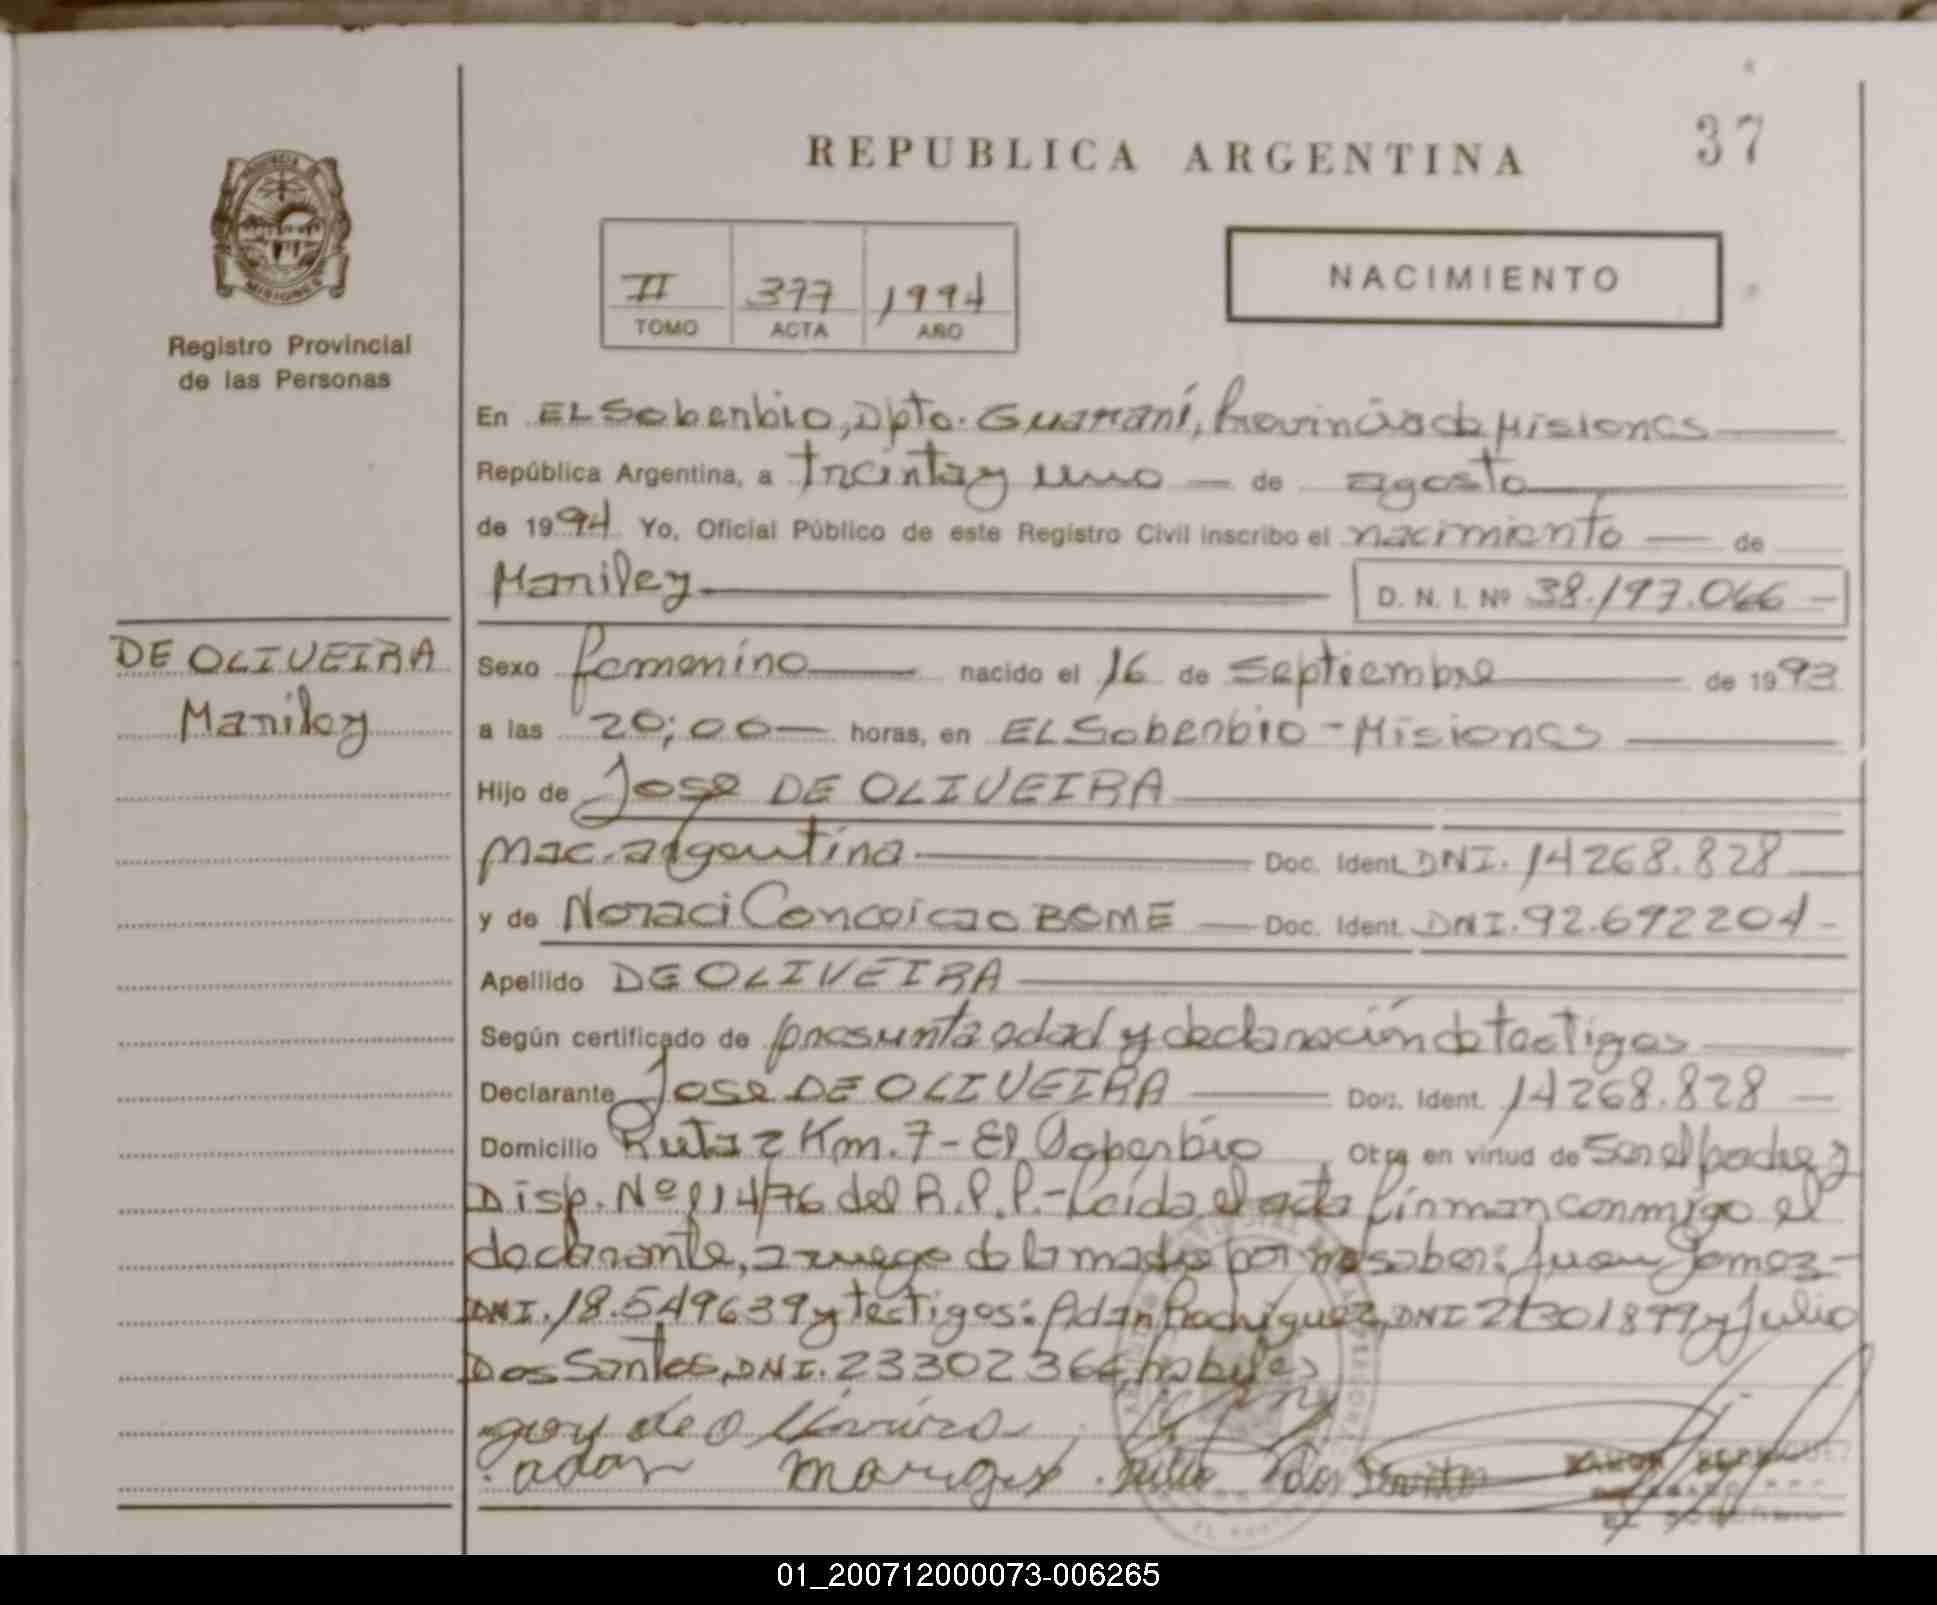 REPUBLICA ARGENTINA
37
PROVINCIA
MISIONES
Registro Provincial
de las Personas
II 377 1994
TOMO ACTA AÑO
NACIMIENTO
En EL Soberbio, Dpto. Guaraní, Provincia de Misiones
República Argentina, a treinta y uno de agosto
de 1994 Yo, Oficial Público de este Registro Civil inscribo el nacimiento de
Mariley D. N. I. Nº 38.197.066
DE OLIVEIRA
Mariley
Sexo femenino nacido el 16 de Septiembre de 1993
a las 20;00 horas, en EL Soberbio - Misiones
Hijo de Jose DE OLIVEIRA
nac. argentina Doc. Ident. DNI. 14268.828
y de Noraci Conceicao BOME Doc. Ident. DNI. 92.692204
Apellido DE OLIVEIRA
Según certificado de presunta edad y declaración de testigos
Declarante Jose DE OLIVEIRA Doc. Ident. 14268.828
Domicilio Ruta 2 Km. 7 - El Soberbio Otra en virtud de Ser el padre y
Disp. Nº 114/76 del R.P.P.- Leída el acta firman conmigo el
declarante, a ruego de la madre por no saber: Juan Gomez -
DNI. 18.549639 y testigos: Adan Rodriguez, DNI 21301899 y Julio
Dos Santos, DNI. 23302364, habiles
de Oliveira
adan Julio Dos Santos
RAMON
EL SOBERBIO
01_200712000073-006265